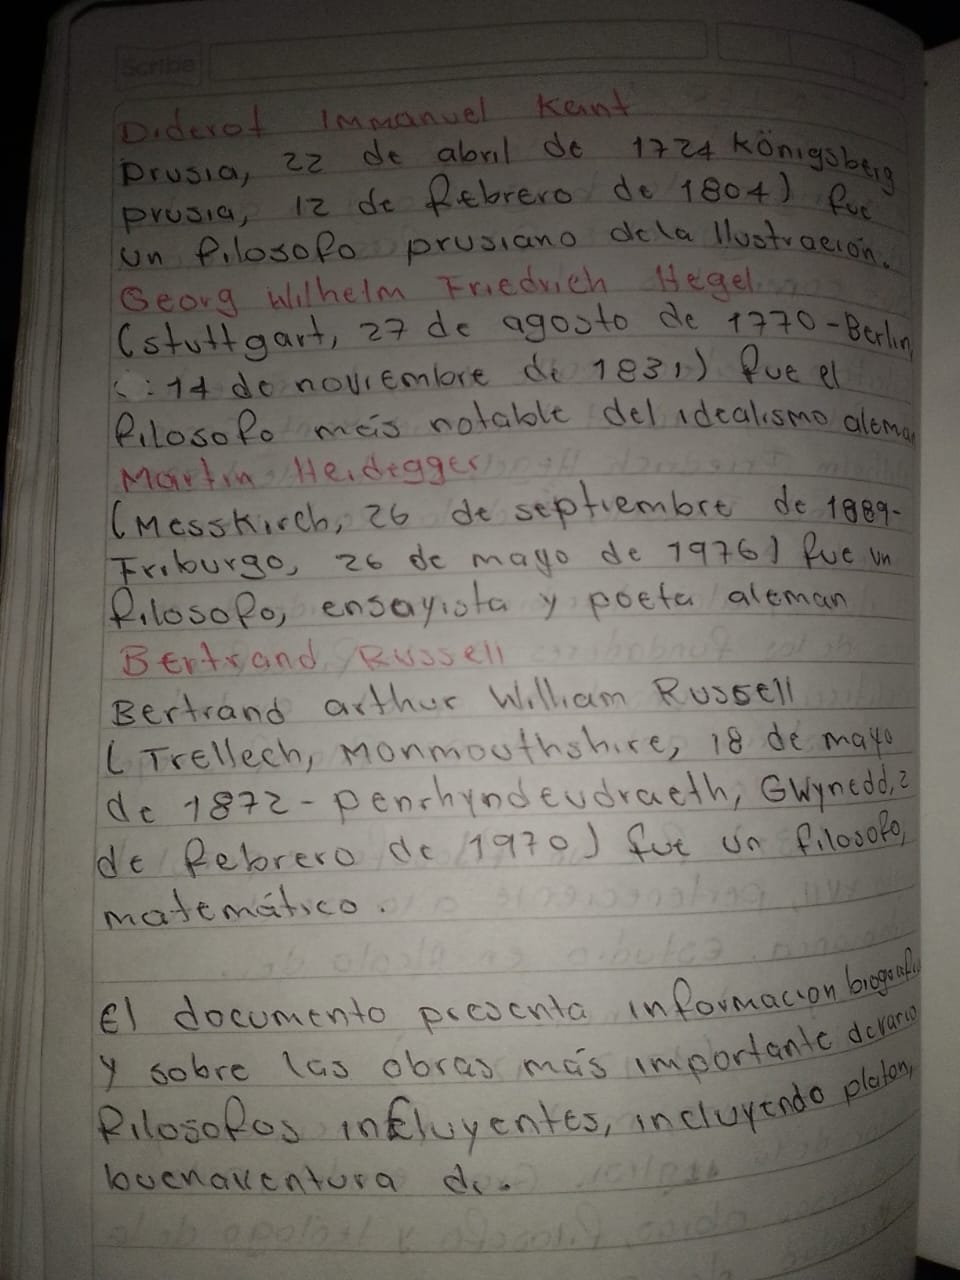 Scribe
Diderot Immanuel Kant
Prusia, 22 de abril de 1724 Königsberg
prusia, 12 de febrero de 1804) fue
un filosofo prusiano dela Ilustración.
Georg Wilhelm Friedrich Hegel
(stuttgart, 27 de agosto de 1770-Berlin,
14 de noviembre de 1831) fue el
filosofo más notable del idealismo aleman
Martin Heidegger
(Messkirch, 26 de septiembre de 1889-
Friburgo, 26 de mayo de 1976) fue un
filosofo, ensayista y poeta aleman
Bertrand Russell
Bertrand arthur William Russell
(Trellech, Monmouthshire, 18 de mayo
de 1872-penrhyndeudraeth, Gwynedd, 2
de febrero de 1970) fue un filosofo,
matemático.
El documento presenta informacion
y sobre las obras más importante de vario
filosofos influyentes, incluyendo platon,
buenaventura de.